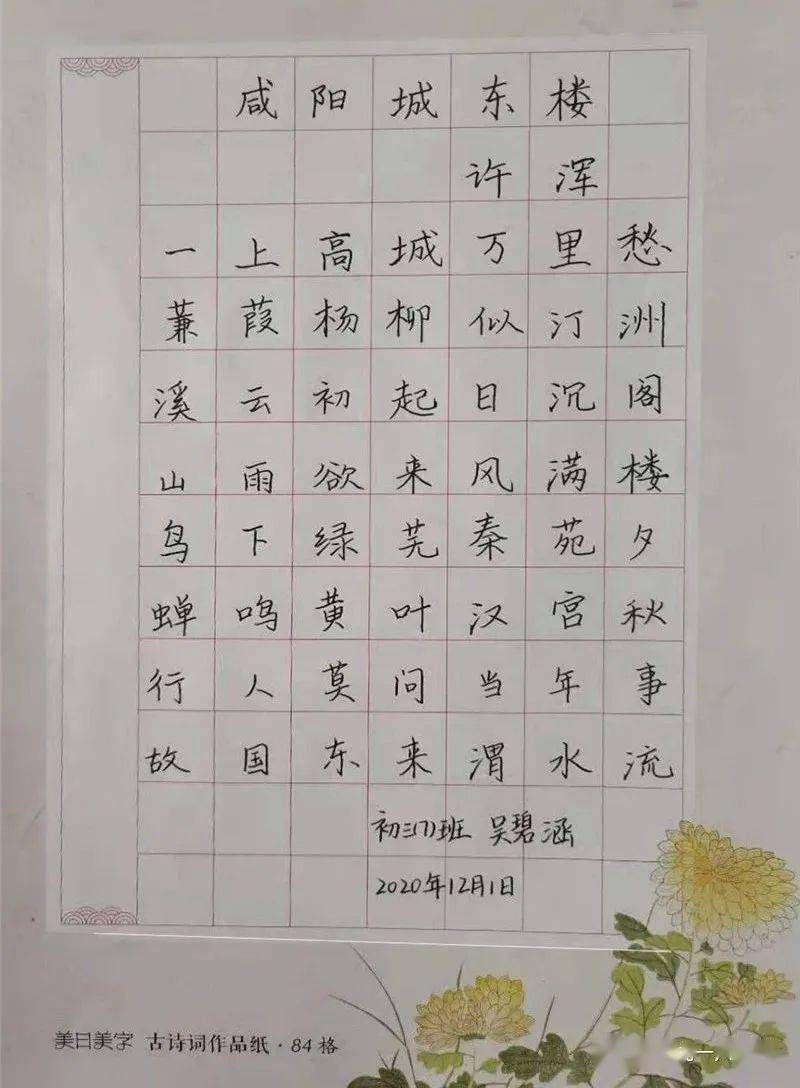 咸阳城东楼
许浑
一上高城万里愁
蒹葭杨柳似汀洲
溪云初起日沉阁
山雨欲来风满楼
鸟下绿芜秦苑夕
蝉鸣黄叶汉宫秋
行人莫问当年事
故国东来渭水流
初三(7)班 吴碧涵
2020年12月1日
美日美字 古诗词作品纸·84格